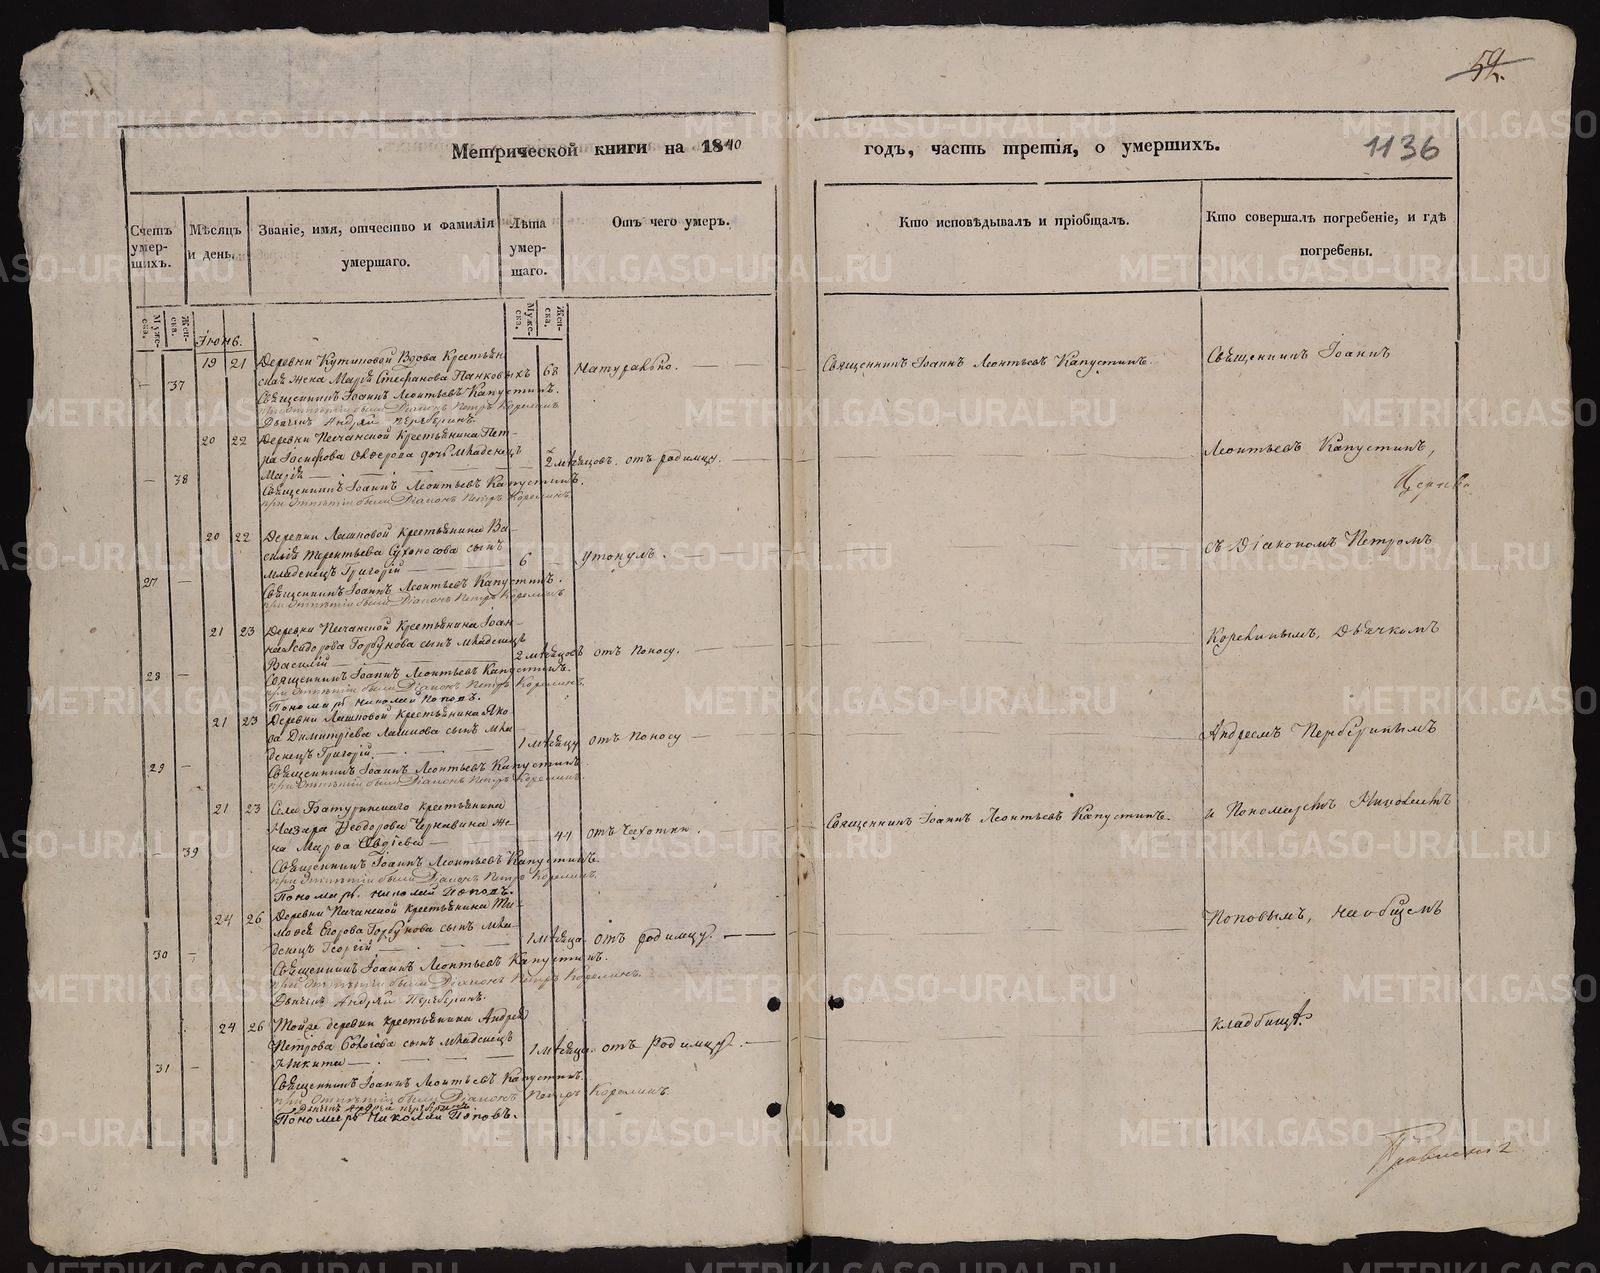 59.
1136
Метрической книги на 1840
годъ, часть третія, о умершихъ.
Счетъ умер-
шихъ.
Мѣсяцъ
и день.
Званіе, имя, отчество и фамилія
умершаго.
Лѣта
умер-
шаго.
Отъ чего умер.
Кто исповѣдывалъ и пріобщалъ.
Кто совершалъ погребеніе, и гдѣ
погребены.
Муже-
ска.
Жен-
ска.
Муже-
ска.
Жен-
ска.
Іюнь.
37 19 21 Деревни Кутиковой Вдова Крестьян
ская жена Марія Стефанова Панковыхъ 68 Натурально.
Священникъ Іоаннъ Леонтьевъ Капустинъ.
при отпѣтіи были Діаконъ Петръ Корелинъ
Дьячекъ Андрей
Священникъ Іоаннъ Леонтьевъ Капустинъ.
Священникъ Іоаннъ
38 20 22 Деревни Песчанской Крестьянина Пет-
ра дочь младенецъ
Марія 2 мѣсяцовъ. отъ родимцу.
Священникъ Іоаннъ Леонтьевъ Капустинъ.
при отпѣтіи были Діаконъ Петръ Корелинъ.
Леонтьевъ Капустинъ,
27 20 22 Деревни Лашковой Крестьянина Ва-
силія Терентьева Сухоносова сынъ
младенецъ Григорій 6 утонулъ.
Священникъ Іоаннъ Леонтьевъ Капустинъ.
при отпѣтіи были Діаконъ Петръ Корелинъ
съ Діакономъ Петромъ
28 21 23 Деревни Песчанской Крестьянина Іоан-
на Исидорова Горбунова сынъ младенецъ
Василій 2 мѣсяцовъ отъ поносу.
Священникъ Іоаннъ Леонтьевъ Капустинъ.
при отпѣтіи были Діаконъ Петръ Корелинъ.
Пономарь Николай Поповъ.
Корелинымъ, Дьячкомъ
29 21 23 Деревни Лашковой крестьянина Яко-
ва Димитріева Лашкова сынъ мла-
денецъ Григорій. 1 мѣсяцу отъ поносу
Священникъ Іоаннъ Леонтьевъ Капустинъ
при отпѣтіи были Діаконъ Петръ Корелинъ.
Андреемъ
39 21 23 Села Батуринскаго крестьянина
Назара Ѳеодорова Чернавина же-
на Марѳа Овдіева 44 отъ чахотки.
Священникъ Іоаннъ Леонтьевъ Капустинъ.
при отпѣтіи были Діаконъ Петръ Корелинъ.
Пономарь Николай Поповъ.
Священникъ Іоаннъ Леонтьевъ Капустинъ.
и Пономаремъ Николаемъ
30 24 26 Деревни Песчанской крестьянина Ти-
моѳея Егорова Горбунова сынъ мла-
денецъ Георгій 1 мѣсяца. отъ родимцу.
Священникъ Іоаннъ Леонтьевъ Капустинъ.
при отпѣтіи были Діаконъ Петръ Корелинъ.
Дьячекъ Андрей
Поповымъ, на общемъ
31 24 26 Той же деревни крестьянина Андрея
Петрова сынъ младенецъ
Никита 1 мѣсяца. отъ родимцу.
Священникъ Іоаннъ Леонтьевъ Капустинъ.
при отпѣтіи были Діаконъ Петръ Корелинъ.
Дьячекъ Андрей
Пономарь Николай Поповъ.
кладбищѣ.
METRIKI.GASO-URAL.RU